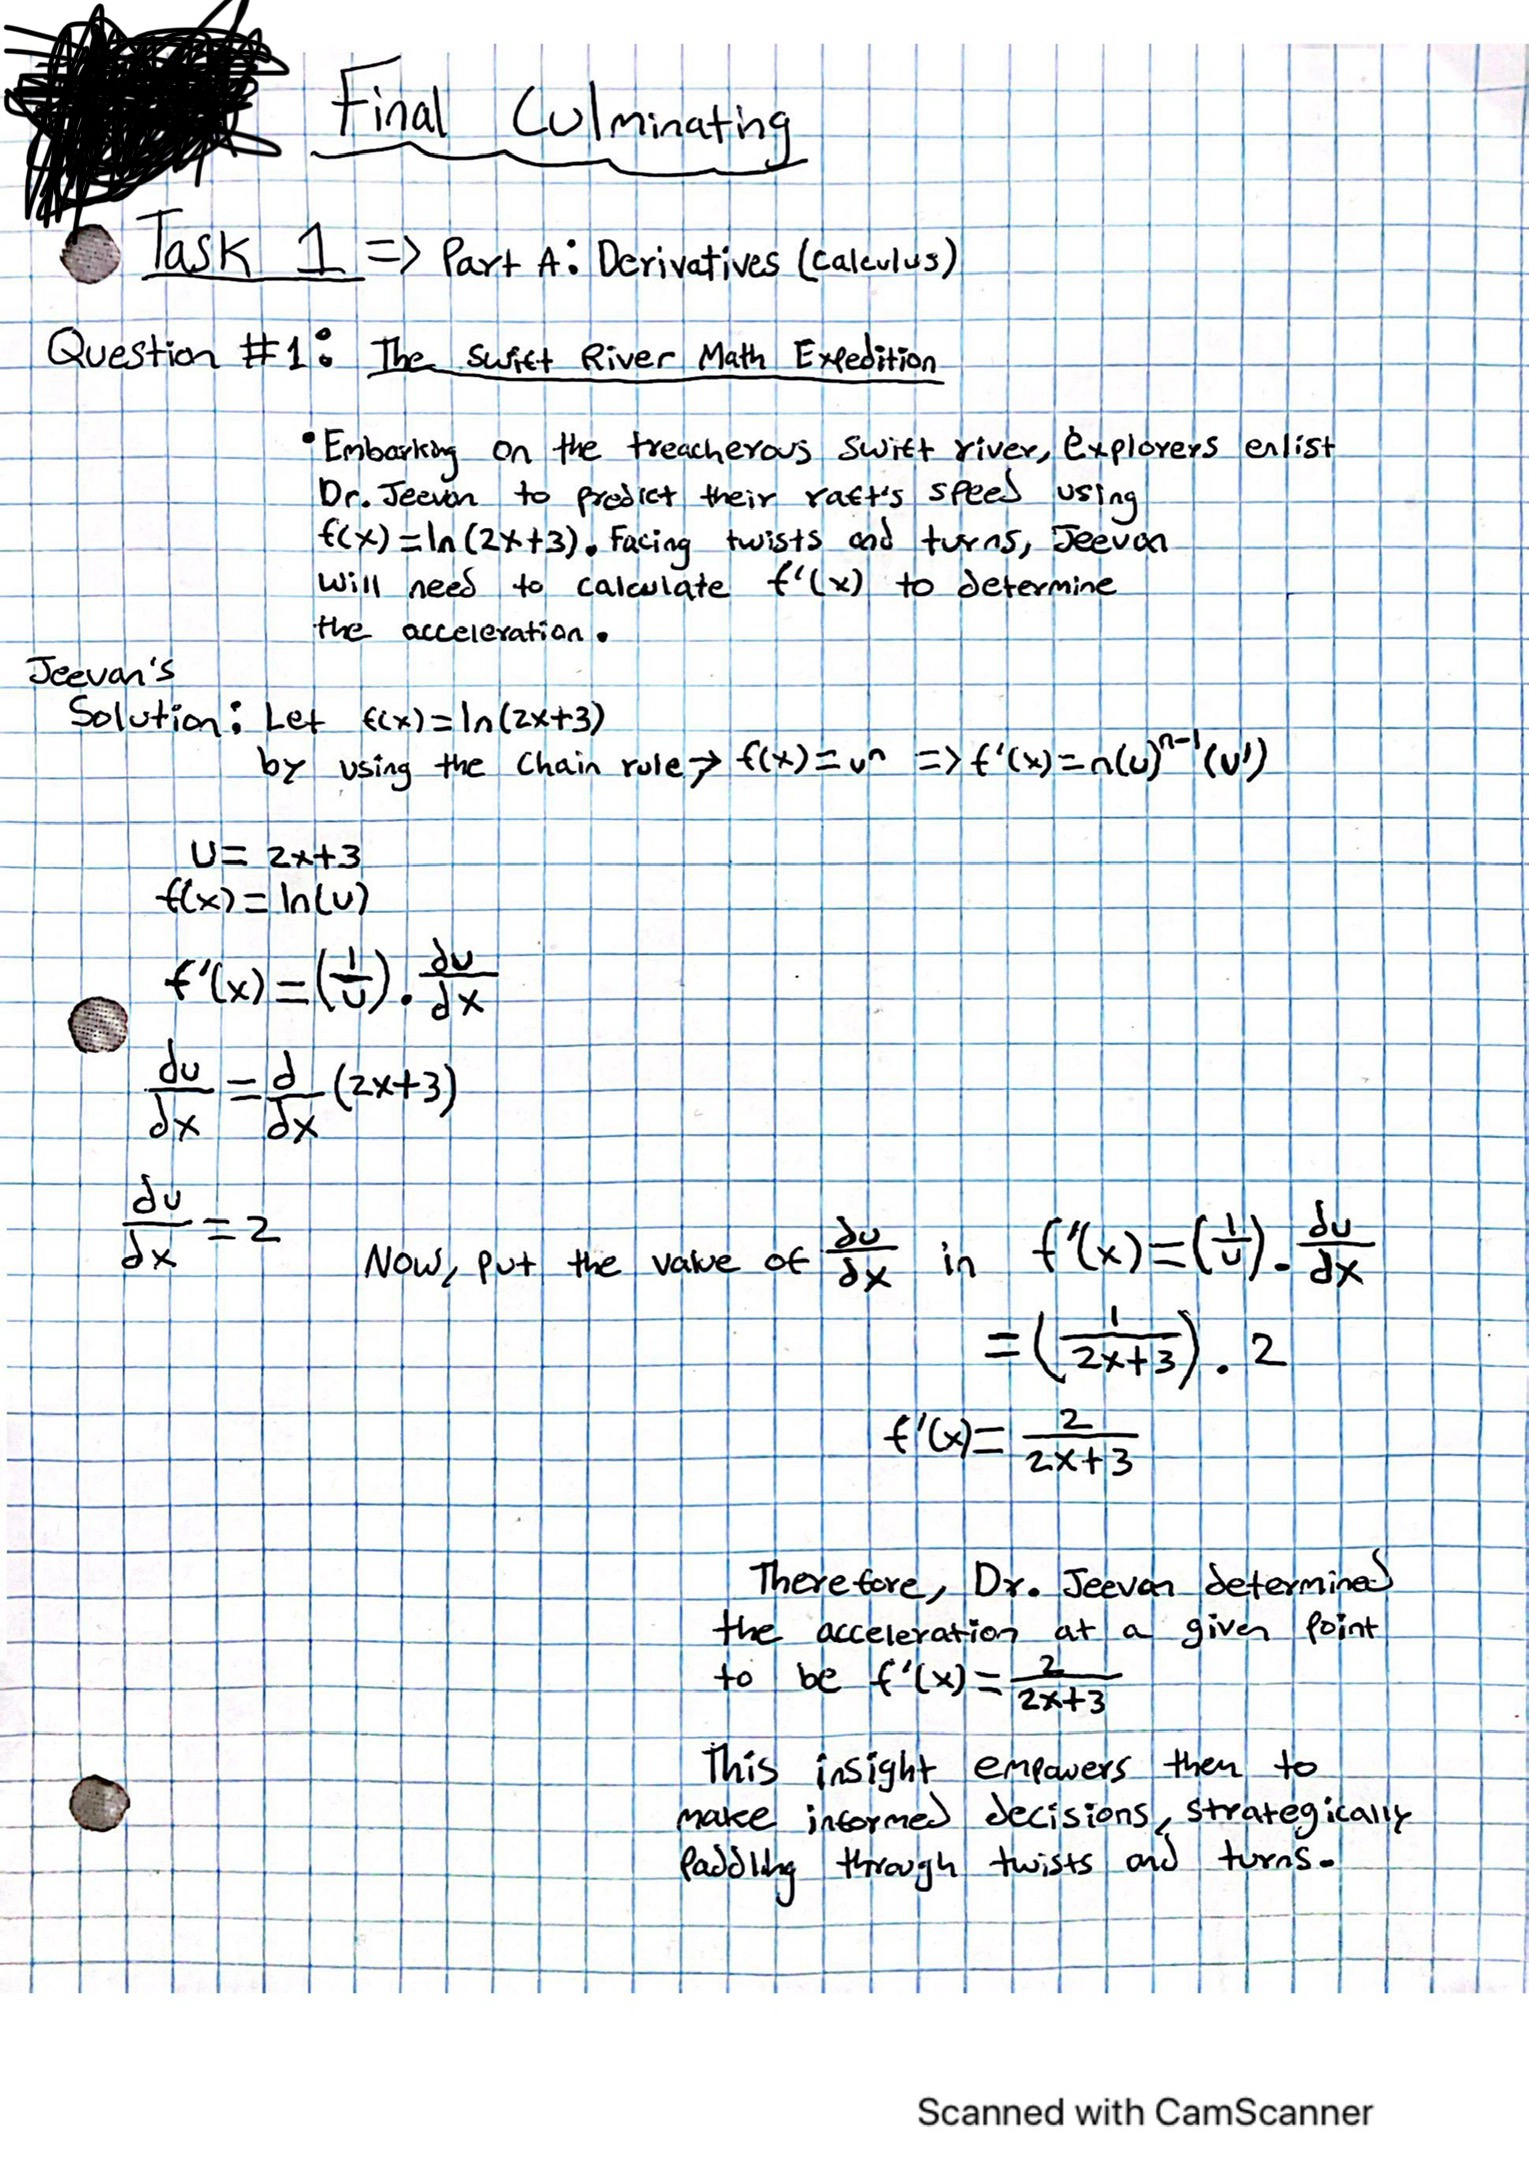 Final Culminating
Task 1 => Part A: Derivatives (Calculus)
Question #1: The Swift River Math Expedition
• Embarking on the treacherous swift river, explorers enlist
Dr. Jeevan to predict their raft's speed using
f(x) = ln(2x+3). Facing twists and turns, Jeevan
will need to calculate f'(x) to determine
the acceleration.
Jeevan's
Solution: Let f(x) = ln(2x+3)
by using the Chain rule → f(x) = uⁿ => f'(x) = n(u)ⁿ⁻¹(u')
U = 2x+3
f(x) = ln(u)
f'(x) = (1/u) · du/dx
du/dx = d/dx (2x+3)
du/dx = 2
Now, put the value of du/dx in f'(x) = (1/u) · du/dx
= (1/2x+3) · 2
f'(x) = 2/2x+3
Therefore, Dr. Jeevan determined
the acceleration at a given point
to be f'(x) = 2/2x+3
This insight empowers then to
make informed decisions, strategically
Paddling through twists and turns.
Scanned with CamScanner